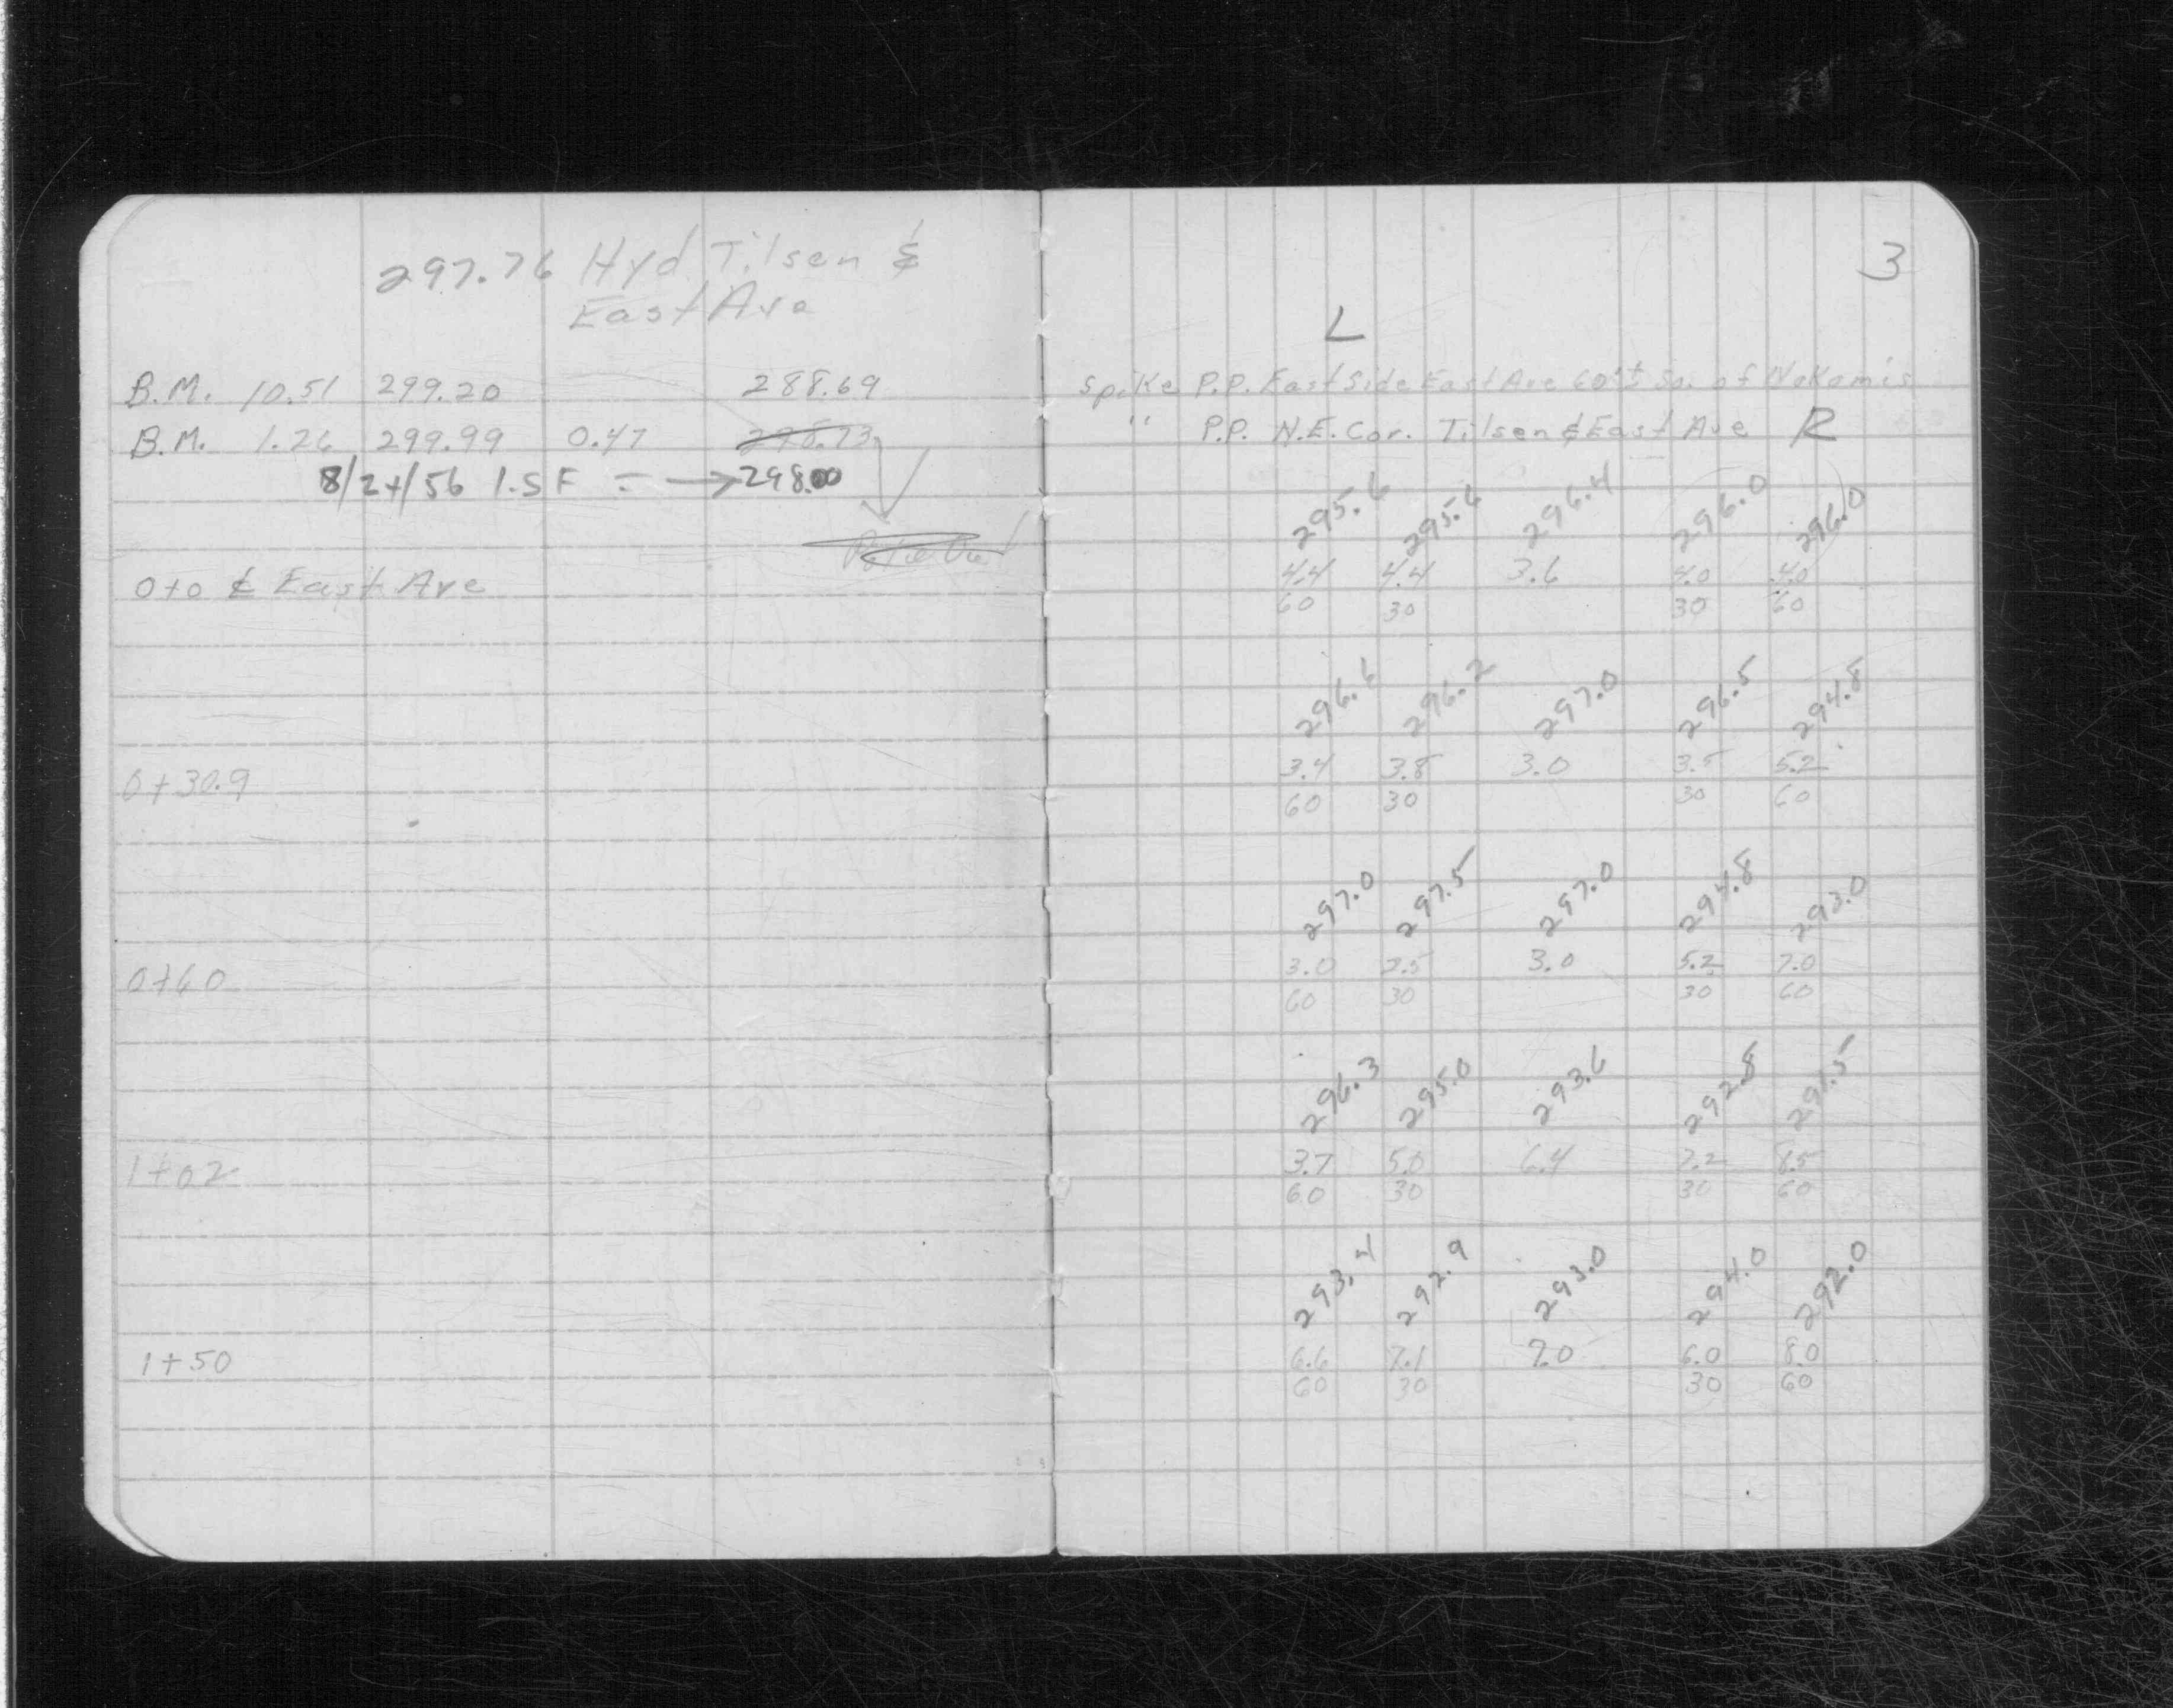 297.76 Hyd Tilsen &
East Ave
B.M. 10.51 299.20 288.69
B.M. 1.26 299.99 0.47 298.73
8/24/56 1.SF = → 298.00
0+0 ℄ East Ave
0+30.9
0+60
1+02
1+50
3
L
Spike P.P. East Side East Ave 60'± So. of Nokomis
" P.P. N.E. Cor. Tilsen & East Ave R
295.6 295.6 296.4 296.0 296.0
4.4 4.4 3.6 4.0 4.0
60 30 30 60
296.6 296.2 297.0 296.5 294.8
3.4 3.8 3.0 3.5 5.2
60 30 30 60
297.0 297.5 297.0 294.8 293.0
3.0 2.5 3.0 5.2 7.0
60 30 30 60
296.3 295.0 293.6 292.8 291.5
3.7 5.0 6.4 7.2 8.5
60 30 30 60
293.4 292.9 293.0 294.0 292.0
6.6 7.1 7.0 6.0 8.0
60 30 30 60